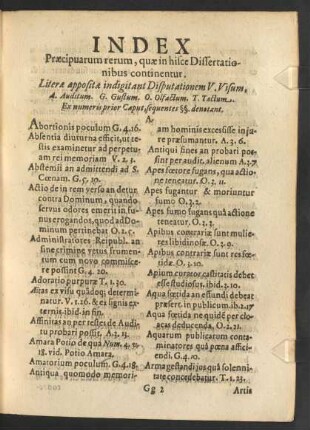 INDEX
Præcipuarum rerum, quæ in hisce Dissertatio-
nibus continentur.
Literæ appositæ indigitant Disputationem V. Visum,
A. Auditum. G. Gustum. O. Olfactum. T. Tactum.
Ex numeris prior Caput, sequentes §§. denotant.
A.
Abortionis poculum G. 4. 16.
Absentia diuturna efficit, ut te-
stis examinetur ad perpetu-
am rei memoriam V. 2. 3.
Abstemii an admittendi ad S.
Cœnam. G. 5. 10.
Actio de in rem verso an detur
contra Dominum, quando
servus odores emerit in fu-
nus erogandos, quod ad Do-
minum pertinebat O. 2. 5.
Administratores Reipubl. an
sine crimine vetus frumen-
tum cum novo commisce-
re possint G. 4. 20.
Adoratio purpuræ T. 1. 30.
Ætas ex visu quádoq; determi-
natur. V. 1. 26. & ex signis ex-
ternis. ibid. in fin.
Affinitas an per testes de Audi-
tu probari possit. A. 2. 13.
Amara Potio de quâ Num. 4. 17.
18. vid. Potio Amara.
Amatorium poculum. G. 4. 18.
Antiqua quomodo memori-
am hominis excessisse in ju-
re præsumantur. A. 3. 6.
Antiqui fines an probari pos-
sint per audit. alienum A. 3. 7.
Apes necans fœtore, quâ actio-
ne teneatur. O. 3. 11.
Apes fugantur & moriuntur
fumo O. 3. 2.
Apes fumo fugans quâ actione
teneatur. O. 2. 3.
Apibus contrariæ sunt mulie-
res libidinosæ. O. 3. 9.
Apibus contraria sunt reſtidæ
Apium curator castitatis debet
esse studiosus. ibid. 3. 10.
Aqua fœtida an effundi debeat
præsert. in publicum. ib. 2. 17.
Aqua fœtida ne quidê per clo-
acas deducenda. O. 2. 21.
Aquarum publicarum conta-
minatores quâ pœna affici-
endi. G. 4. 10.
Arma gestandi jos quâ solenni-
tate concedebatur. T. 1. 23.
Gg 2
Artis